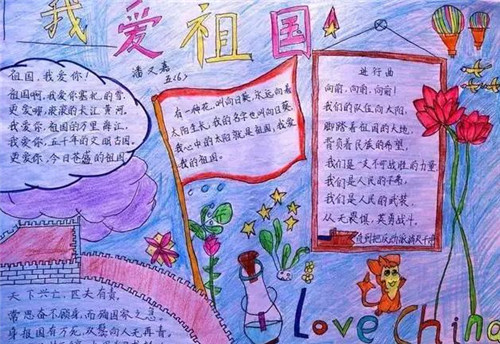 我爱祖国
潘文嘉
五(6)
祖国,我爱你!
祖国啊,我爱你紫忆的雪,
更爱你滚滚的长江黄河。
我爱你,祖国的万里海江,
我爱你,五千年的文明古国。
更爱你,今日苍盛的祖国
有一种花,叫向日葵,永远向着
太阳生长,我的名字也叫向日葵
我心中的太阳就是祖国,我爱
我的祖国。
进行曲
向前,向前,向前!
我们的队伍向太阳,
脚踏着祖国的大地,
背负着民族的希望,
我们是一支不可战胜的力量
我们是人民的子弟,
我们是人民的武装,
从无畏惧,英勇战斗,
直到把反动派消灭干净
天下兴亡,匹夫有责,
常思奋不顾身,而殉国家之急。
身报国有万死,双鬓向人无再青。
Love China